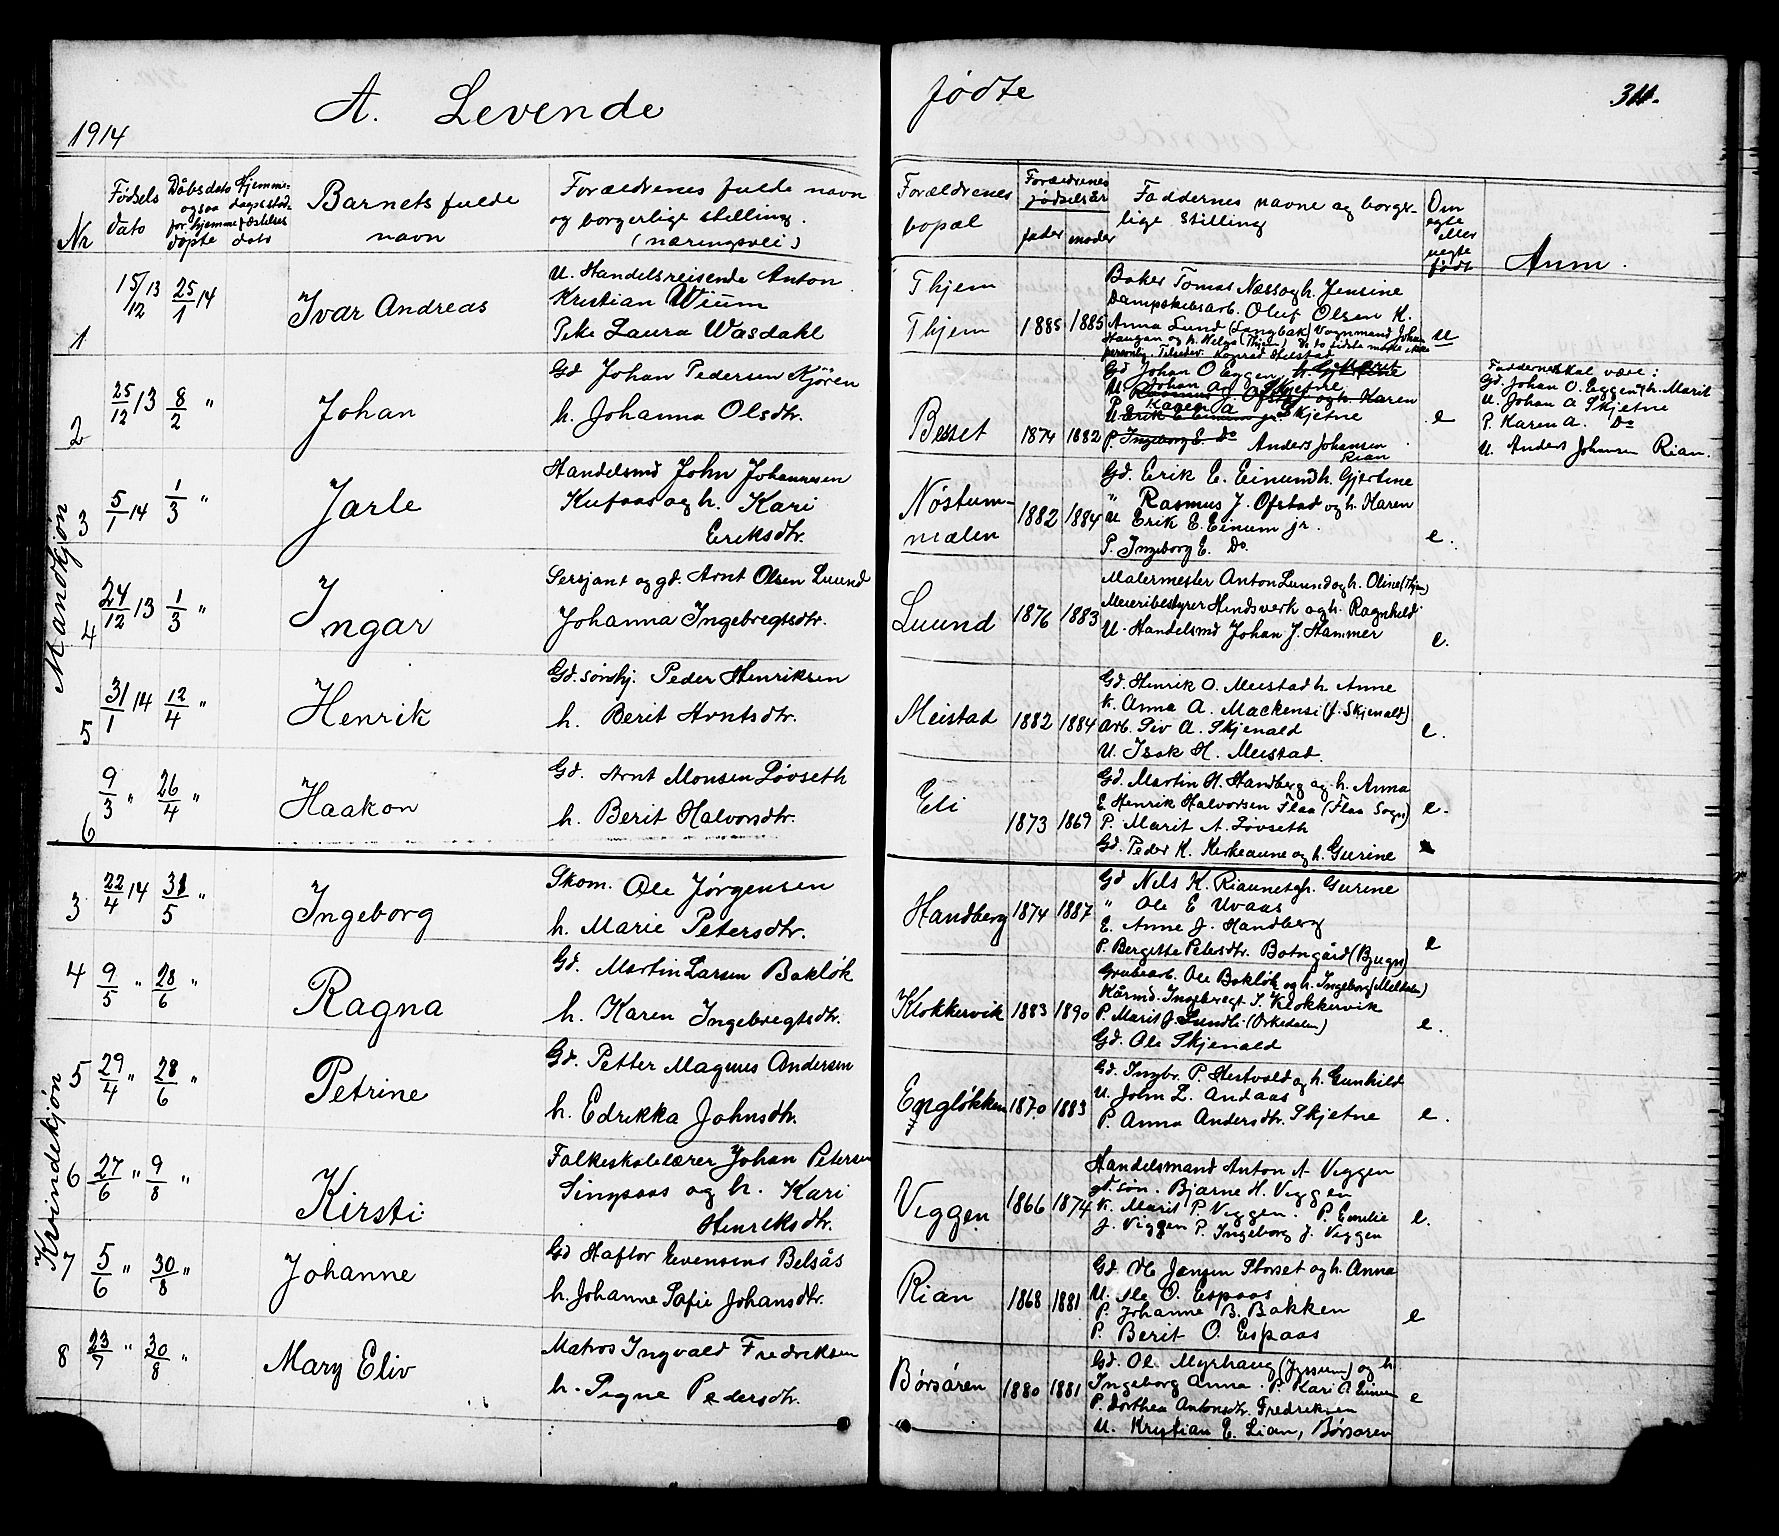 A. Levende fødte
311.
1914
Nr
Fødsels dato
Dåbsdato ogsaa for hjemme døpte
Hjemmedaaps stadfæstelses dato
Barnets fulde navn
Forældrenes fulde navn og borgerlige stilling. (næringsvei)
Forældrenes bopæl
Forældrenes fødselsår
fader
moder
Faddernes navne og borgerlige stilling
Om egte eller uegte født
Anm.
Mandkjøn
1
15/12 13
25/1 14
Ivar Andreas
U. Handelsreisende Anton
Kristian Wiium
Pike Laura Wasdahl
Thjem
Thjem
1885
1885
Baker Tomas Næss og h. Jensine
Dampskibsarb. Oluf Olsen K.
Anna Lund (Langbak) Vognmand Johan
Haugan og h. Helga (Thjem) De to sidste møtte ikke
personlig. Tilstede: Konrad Meistad
u
2
25/12 13
8/2 "
Johan
Gd Johan Pedersen Kjøren
h. Johanna Olsdtr.
Besset
1874
1882
Gd Johan O Eggen, h. Gjertine
U. Johan A. Skjetne
U. Rasmus J. Ofstad og h. Karen
P. Karen A
U. Erik E. Einum jr. Skjetne
P. Ingeborg E. Do Anders Johansen
Rian
e
Fadderne skal være:
Gd. Johan O. Eggen & h. Marit
U. Johan A Skjetne
P. Karen A. Do
U. Anders Johansen Rian.
3
5/1 14
1/3 "
Jarle
Handelsmd John Johannesen
Kufaas og h. Kari
Eriksdtr.
Nøstum-
mælen
1882
1884
Gd. Erik E. Einum & h. Gjertine
" Rasmus J. Ofstad og h. Karen
U Erik E. Einum jr.
P. Ingeborg E. Do.
e.
4
24/12 13
1/3 "
Ingar
Sersjant og gd. Arnt Olsen Luund
Johanna Ingebregtsdtr.
Luund
1876
1883
Malermester Anton Luund og h. Oline (Thjem)
Meieribestyrer Hindsverk og h. Ragnhild
U. Handelsmd Johan J. Hammer
e.
5
31/1 14
12/4 "
Henrik
Gd. sønnhj. Peder Henriksen
h. Berit Arntsdtr.
Meistad
1882
1884
Gd. Henrik O. Meistad h. Anne
K. Anna A. Mackensi (f. Skjenald)
Arb. Siv A. Skjenald
U. Isak H. Meistad.
e.
6
9/3 "
26/4 "
Haakon
Gd. Arnt Monsen Løvseth
h. Berit Halvorsdtr.
Eli
1873
1869
Gd. Martin H. Handberg og h. Anna
E. Henrik Halvorsen Flaa (Flaa Sogn)
P. Marit A. Løvseth
Gd. Peder K. Kirkeaune og h. Gurine
e.
Kvindekjøn
3
22/4 14
31/5 "
Ingeborg
Skom. Ole Jørgensen
h. Marie Petersdtr.
Handberg
1874
1887
Gd Nils K. Riaunet og h. Gurine
" Ole E Uvaas
E. Anne J. Handberg
P. Bergitte Petersdtr. Botngård (Bjugn)
e
4
9/5 "
28/6 "
Ragna
Gd. Martin Larsen Bakløk
h. Karen Ingebregtsdtr.
Klokkervik
1883
1890
Grubearb. Ole Bakløk og h. Ingeborg (Meldalen)
Kårmd. Ingebregt I. Klokkervik
P. Marit J. Lundli (Orkedalen)
Gd. Ole Skjenald
e.
5
29/4 "
28/6 "
Petrine
Gd. Petter Magnus Andersen
h. Edrikka Johnsdtr.
Engløkken
1870
1883
Gd. Ingbr. P. Hestvold og h. Gunhild
U. John L. Andaas
P. Anna Andersdtr. Skjetne
e.
6
27/6 "
9/8 "
Kirsti
Folkeskolelærer Johan Petersen
Singsaas og h. Kari
Henriksdtr.
Viggen
1866
1874
Handelsmand Anton A Viggen
gd. søn. Bjarne H. Viggen
K. Marit P. Viggen. P. Emilie
J. Viggen P. Ingeborg J. Viggen
e.
7
5/6 "
30/8 "
Johanne
Gd Haftor Evensens Belsås
h. Johanne Sofie Johansdtr.
Rian
1868
1881
Gd. Ole Jansen Storset og h. Anna
U. Ole O. Espaas
P. Johanne B. Bakken
P. Berit O. Espaas
e
8
23/7 "
30/8 "
Mary Eliv
Matros Ingvald Fredriksen
h. Signe Pedersdtr.
Børsøren
1880
1881
Gd. Ole Myrhaug (Jyssum) og h.
Ingeborg Anna. P. Kari A Einum
P. Dorthea Antonsdtr. Fredriksen
U. Kristian E. Lian, Børsøren
e